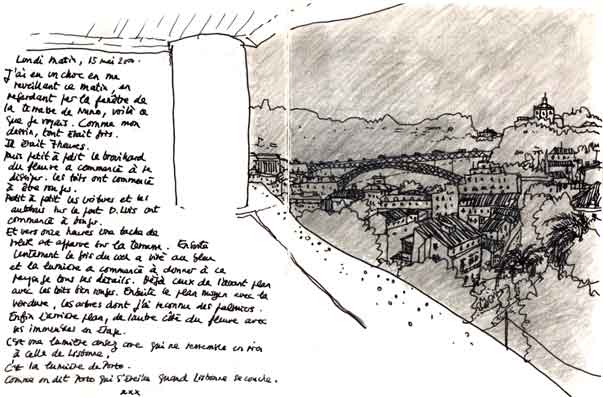 Lundi Matin, 15 mai 2000.
J'ai eu un choc en me
reveillant ce matin, en
regardant par la fenêtre de
la terrasse de Nuno, voilà ce
que je voyais. Comme mon
dessin, tout était gris.
Il était 7 heures.
Puis petit à petit le brouillard
du fleuve a commencé à se
dissiper. Les toits ont commencé
à être rouges.
Petit à petit les voitures et les
autobus sur le pont D. Luis ont
commencé à bouger.
Et vers onze heures une tache de
soleil est apparue sur la terrasse. Ensuite
lentement le gris du ciel a viré au bleu
et la lumière a commencé à donner à ce
paysage tous les détails. Déjà ceux de l'avant plan
avec les toits bien rouges. Ensuite le plan moyen avec la
verdure, les arbres dont j'ai reconnu des palmiers.
Enfin l'arrière plan, de l'autre côté du fleuve avec
ses immeubles en étage.
C'est une lumière assez rare qui ne ressemble en rien
à celle de Lisbonne,
C'est la lumière de Porto.
Comme on dit Porto qui s'éveille quand Lisbonne se couche.
xxx